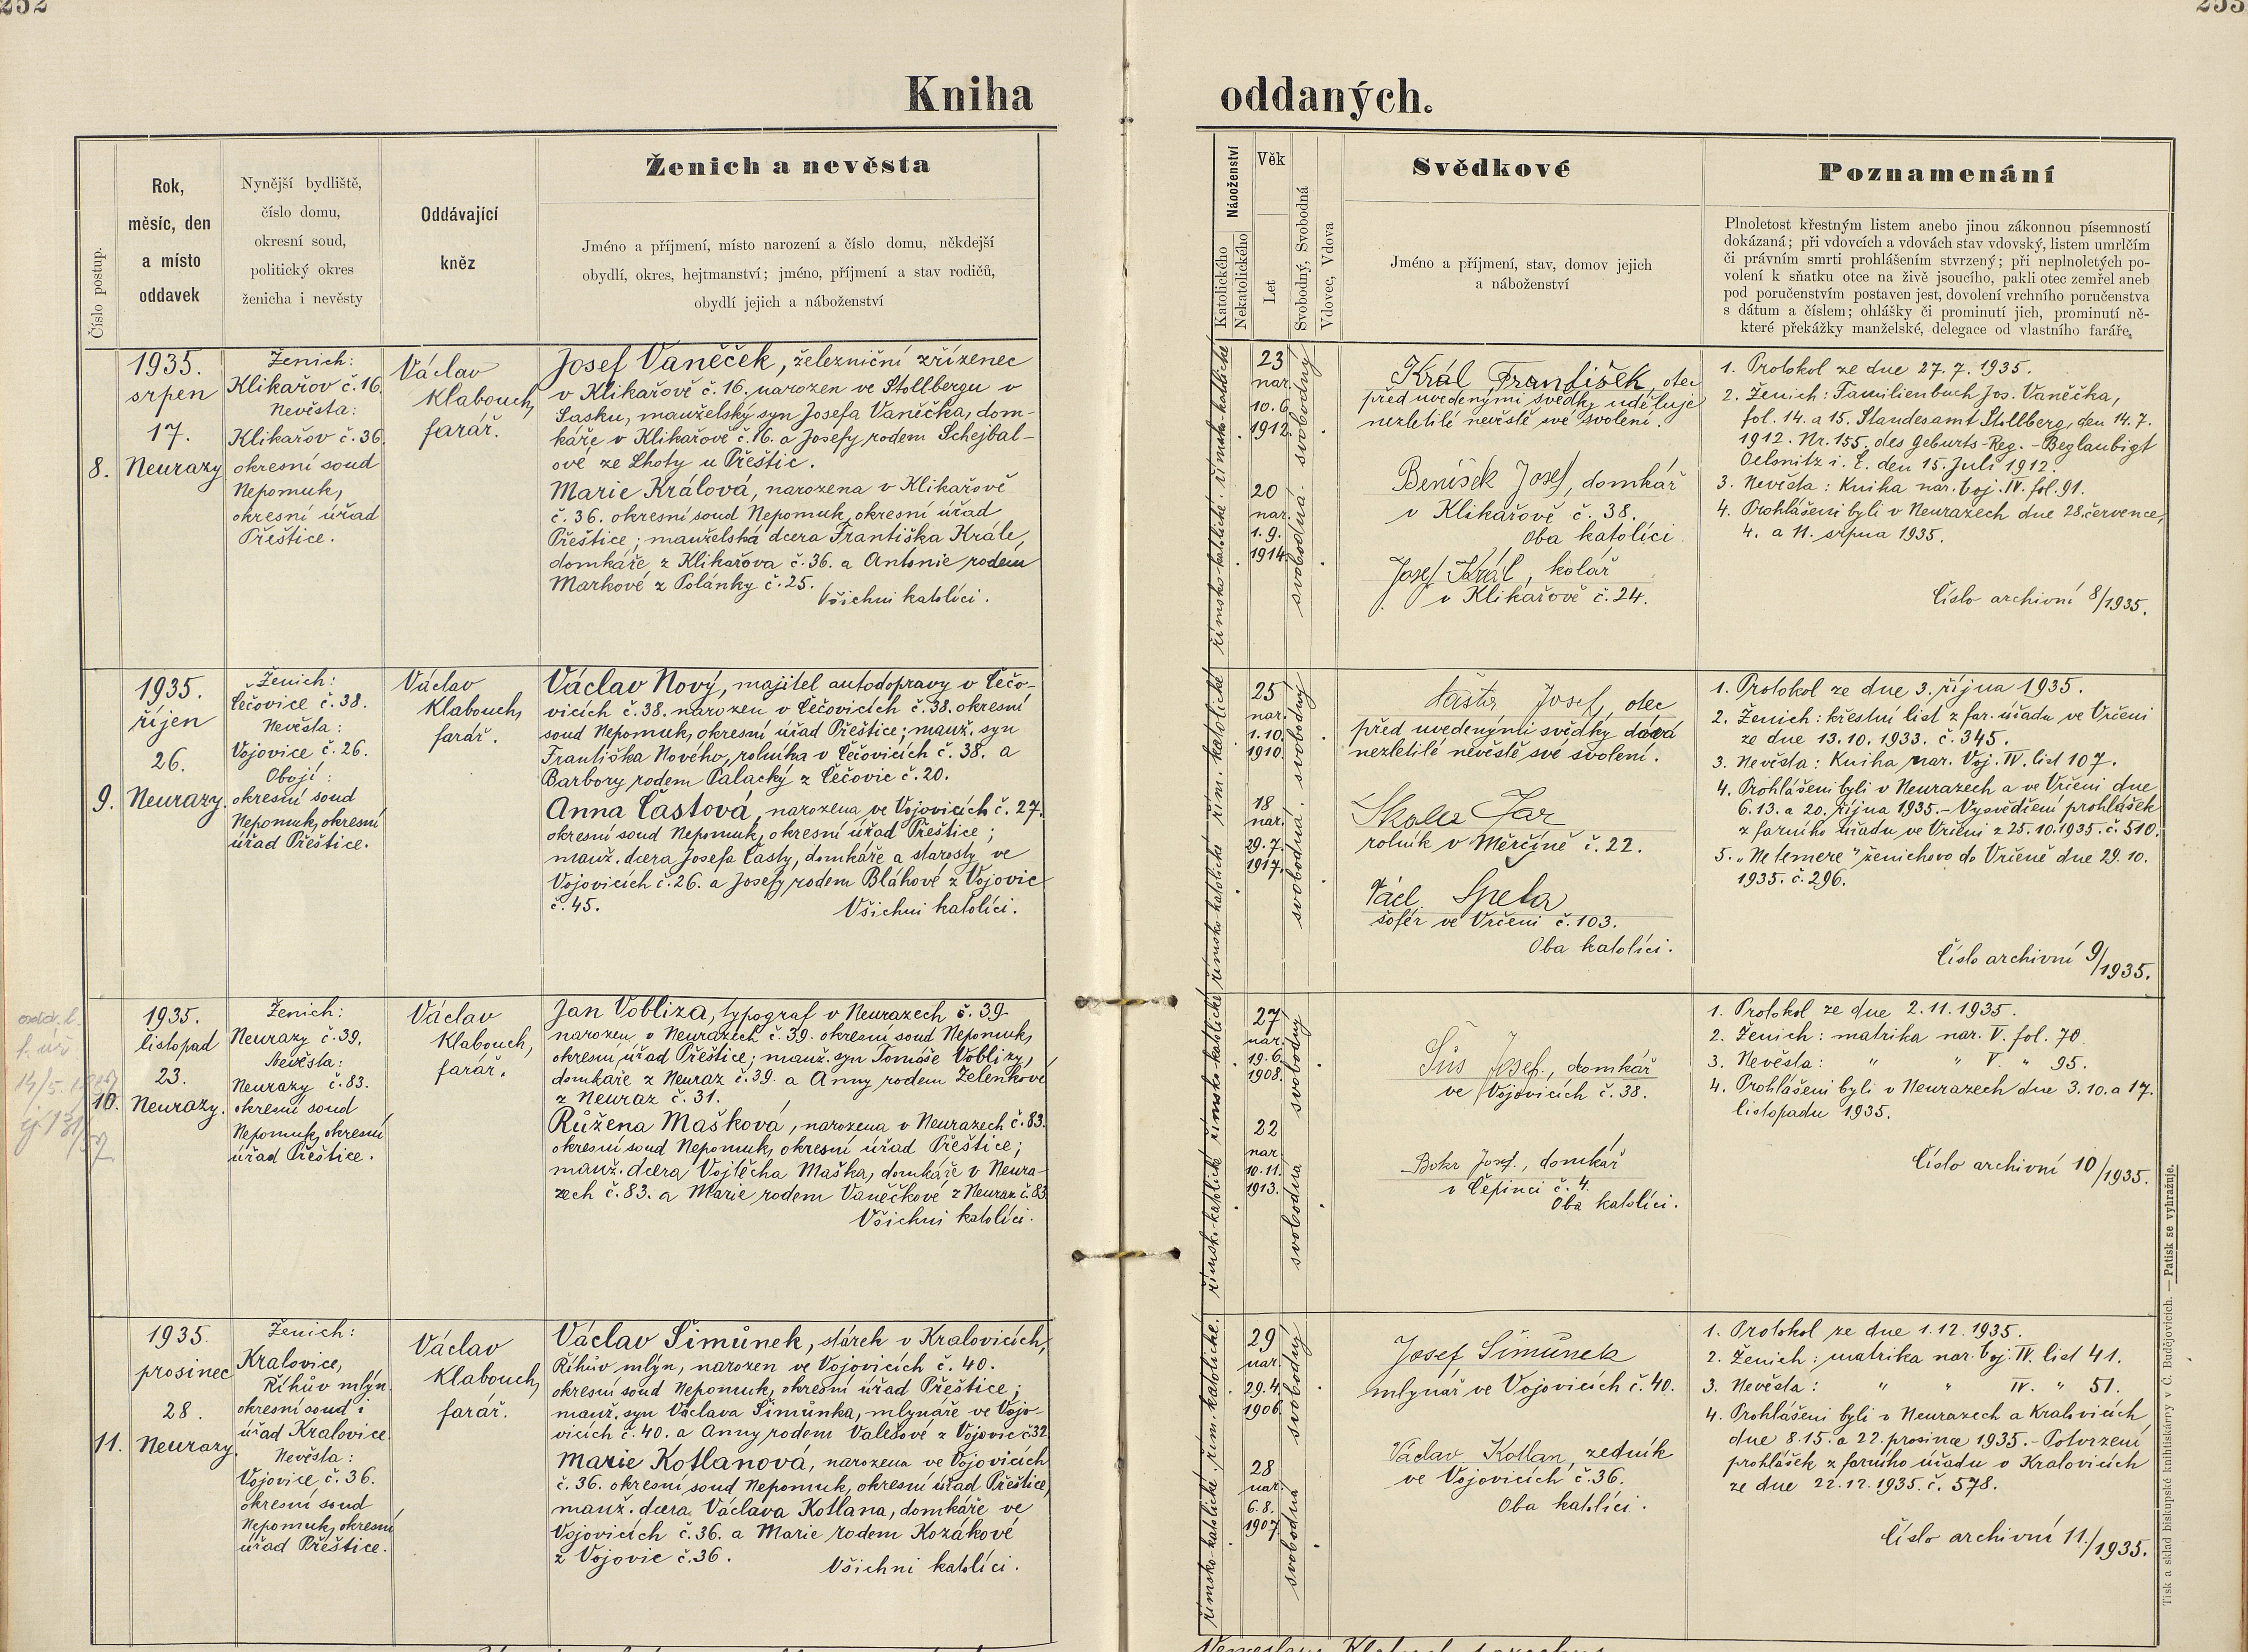 252
253
Kniha
oddaných.
Číslo postup.
Rok,
měsíc, den
a místo
oddavek
Nynější bydliště,
číslo domu,
okresní soud,
politický okres
ženicha i nevěsty
Oddávající
kněz
Ženich a nevěsta
Jméno a příjmení, místo narození a číslo domu, někdejší
obydlí, okres, hejtmanství; jméno, příjmení a stav rodičů,
obydlí jejich a náboženství
Náboženství
Katolického
Nekatolického
Věk
Let
Svobodný, Svobodná
Vdovec, Vdova
Svědkové
Jméno a příjmení, stav, domov jejich
a náboženství
Poznamenání
Plnoletost křestným listem anebo jinou zákonnou písemností
dokázaná; při vdovcích a vdovách stav vdovský, listem umrlčím
či právním smrti prohlášením stvrzený; při neplnoletých po-
volení k sňatku otce na živě jsoucího, pakli otec zemřel aneb
pod poručenstvím postaven jest, dovolení vrchního poručenstva
s dátum a číslem; ohlášky či prominutí jich, prominutí ně-
které překážky manželské, delegace od vlastního faráře.
8.
1935.
srpen
17.
Neurazy
Ženich:
Klikařov č.16.
Nevěsta:
Klikařov č.36.
okresní soud
Nepomuk,
okresní úřad
Přeštice.
Václav
Klabouch,
farář.
Josef Vaněček, železniční zřízenec
v Klikařově č.16. narozen ve Stollbergu v
Sasku, manželský syn Josefa Vaněčka, dom-
káře v Klikařově č.16. a Josefy rodem Schejbal-
ové ze Lhoty u Přeštic.
Marie Králová, narozena v Klikařově
č.36. okresní soud Nepomuk, okresní úřad
Přeštice; manželská dcera Františka Krále,
domkáře z Klikařova č.36. a Antonie rodem
Markové z Polánky č.25.
Všichni katolíci.
římsko-katolické. římsko-katolické
23
nar.
10.6.
1912.
svobodný
20
nar.
1.9.
1914.
svobodná.
Král František, otec
před uvedenými svědky uděluje
nezletilé nevěstě své svolení.
Benísek Josef, domkář
v Klikařově č. 38.
Oba katolíci.
Josef Král, kolář
v Klikařově č.24.
1. Protokol ze dne 27.7.1935.
2. Ženich: Familienbuch Jos. Vaněčka,
fol. 14. a 15. Standesamt Stollberg, den 14.7.
1912. Nr.155. des Geburts-Reg. - Beglaubigt
Oelsnitz i. E. den 15. Juli 1912.
3. Nevěsta: Kniha nar. Voj. IV. fol. 91.
4. Prohlášeni byli v Neurazech dne 28. července,
4. a 11. srpna 1935.
Číslo archivní 8/1935.
9.
1935.
říjen
26.
Neurazy.
Ženich:
Čečovice č.38.
Nevěsta:
Vojovice č.26.
Obojí:
okresní soud
Nepomuk, okresní
úřad Přeštice.
Václav
Klabouch,
farář.
Václav Nový, majitel autodopravy v Čečo-
vicích č.38. narozen v Čečovicích č.38. okresní
soud Nepomuk, okresní úřad Přeštice; manž. syn
Františka Nového, rolníka v Čečovicích č.38. a
Barbory rodem Palacký z Čečovic č.20.
Anna Častová, narozena ve Vojovicích č.27.
okresní soud Nepomuk, okresní úřad Přeštice;
manž. dcera Josefa Časty, domkáře a starosty ve
Vojovicích č.26. a Josefy rodem Bláhové z Vojovic
č.45.
Všichni katolíci.
římsko katolické řím. katolické
25
nar.
1.10.
1910.
svobodný
18
nar.
29.7.
1917.
svobodná.
Časta Josef, otec
před uvedenými svědky dává
nezletilé nevěstě své svolení.
rolník v Měrčíně č.22.
Václ. Špeta
šofér ve Vrčeni č.103.
Oba katolíci.
1. Protokol ze dne 3. října 1935.
2. Ženich: křestní list z far. úřadu ve Vrčeni
ze dne 13.10.1933. č.345.
3. Nevěsta: Kniha nar. Voj. IV. list 107.
4. Prohlášeni byli v Neurazech a ve Vrčeni dne
6. 13. a 20. října 1935. - Vysvědčení prohlášek
z farního úřadu ve Vrčeni z 25.10.1935. č.510.
5. "Ne temere" ženichovo do Vrčeně dne 29.10.
1935. č.296.
Číslo archivní 9/1935.
10.
1935.
listopad
23.
Neurazy.
Ženich:
Neurazy č.39.
Nevěsta:
Neurazy č.83.
okresní soud
Nepomuk, okresní
úřad Přeštice.
Václav
Klabouch,
farář.
Jan Vobliza, typograf v Neurazech č.39.
narozen v Neurazech č.39. okresní soud Nepomuk,
okresní úřad Přeštice; manž. syn Tomáše Voblizy,
domkáře z Neuraz č.39. a Anny rodem Zelenkové
z Neuraz č.31.
Růžena Mašková, narozena v Neurazech č.83.
okresní soud Nepomuk, okresní úřad Přeštice;
manž. dcera Vojtěcha Maška, domkáře v Neura-
zech č.83. a Marie rodem Vaněčkové z Neuraz č.83.
Všichni katolíci.
římsko-katolické římsko-katolické
27
nar.
19.6.
1908.
svobodný
22
nar.
10.11.
1913.
svobodná
Šůs Josef, domkář
ve Vojovicích č.38.
Josef, domkář
v Čepinci č.4.
Oba katolíci.
1. Protokol ze dne 2.11.1935.
2. Ženich: matrika nar. V. fol. 70.
3. Nevěsta: " " V. " 95.
4. Prohlášeni byli v Neurazech dne 3. 10. a 17.
listopadu 1935.
Číslo archivní 10/1935.
11.
1935.
prosinec
28.
Neurazy.
Ženich:
Kralovice,
Říhův mlýn.
okresní soud i
úřad Kralovice.
Nevěsta:
Vojovice č.36.
okresní soud
Nepomuk, okresní
úřad Přeštice.
Václav
Klabouch,
farář.
Václav Šimůnek, stárek v Kralovicích,
Říhův mlýn, narozen ve Vojovicích č.40.
okresní soud Nepomuk, okresní úřad Přeštice;
manž. syn Václava Šimůnka, mlynáře ve Vojo-
vicích č.40. a Anny rodem Valešové z Vojovic č.32.
Marie Kotlanová, narozena ve Vojovicích
č.36. okresní soud Nepomuk, okresní úřad Přeštice,
manž. dcera Václava Kotlana, domkáře ve
Vojovicích č.36. a Marie rodem Kozákové
z Vojovic č.36.
Všichni katolíci.
římsko-katolické. řím. katolické.
29
nar.
29.4.
1906.
svobodný
28
nar.
6.8.
1907.
svobodná
Josef Šimůnek
mlynář ve Vojovicích č.40.
Václav Kotlan, zedník
ve Vojovicích č.36.
Oba katolíci.
1. Protokol ze dne 1.12.1935.
2. Ženich: matrika nar. Voj. IV. list 41.
3. Nevěsta: " " IV. " 51.
4. Prohlášeni byli v Neurazech a Kralovicích
dne 8. 15. a 22. prosince 1935. - Potvrzení
prohlášek z farního úřadu v Kralovicích
ze dne 22.12.1935. č.578.
Číslo archivní 11./1935.
Tisk a sklad biskupské knihtiskárny v Č. Budějovicích. — Patisk se vyhražuje.